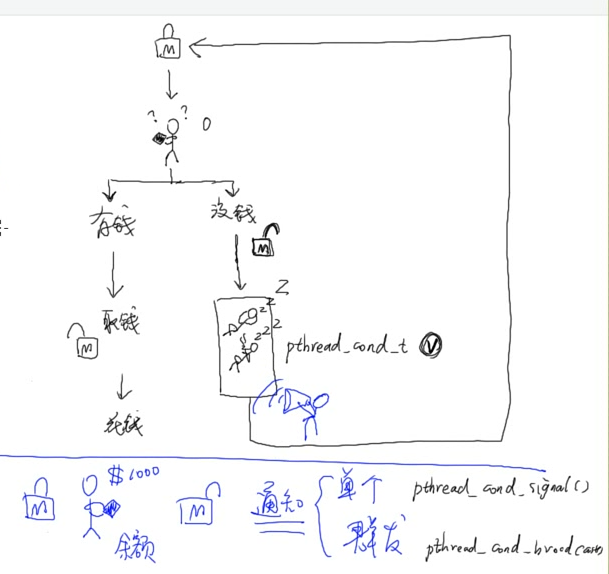 M
? ?
0
有钱
没钱
M
取钱
M
z z z z z
pthread_cond_t V
花钱
M
$1000
余额
M
通知
单个 pthread_cond_signal()
群发 pthread_cond_broadcast